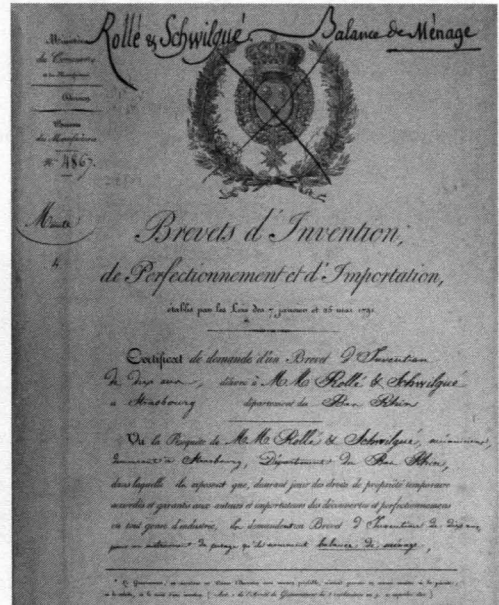 Rollé & Schwilgué Balance de Ménage
Ministère
du Commerce
et des Manufactures
Bureau
des Manufactures
N.° 4867.
Minute
4
Brevets d'Invention,
de Perfectionnement et d'Importation,
établis par les Lois des 7 janvier et 25 mai 1791.
Certificat de demande d'un Brevet d'Invention
de dix ans, délivré à M.M. Rollé & Schwilgué
à Strasbourg département du Bas Rhin
Vu la Requête de M.M. Rollé & Schwilgué, mécaniciens,
demeurant à Strasbourg, Département du Bas Rhin,
dans laquelle ils exposent que, désirant jouir des droits de propriété temporaire
accordés et garantis aux auteurs et importateurs des découvertes et perfectionnemens
en tout genre d'industrie, ils demandent un Brevet d'Invention de dix ans,
pour un instrument de pesage qu'ils nomment balance de ménage,